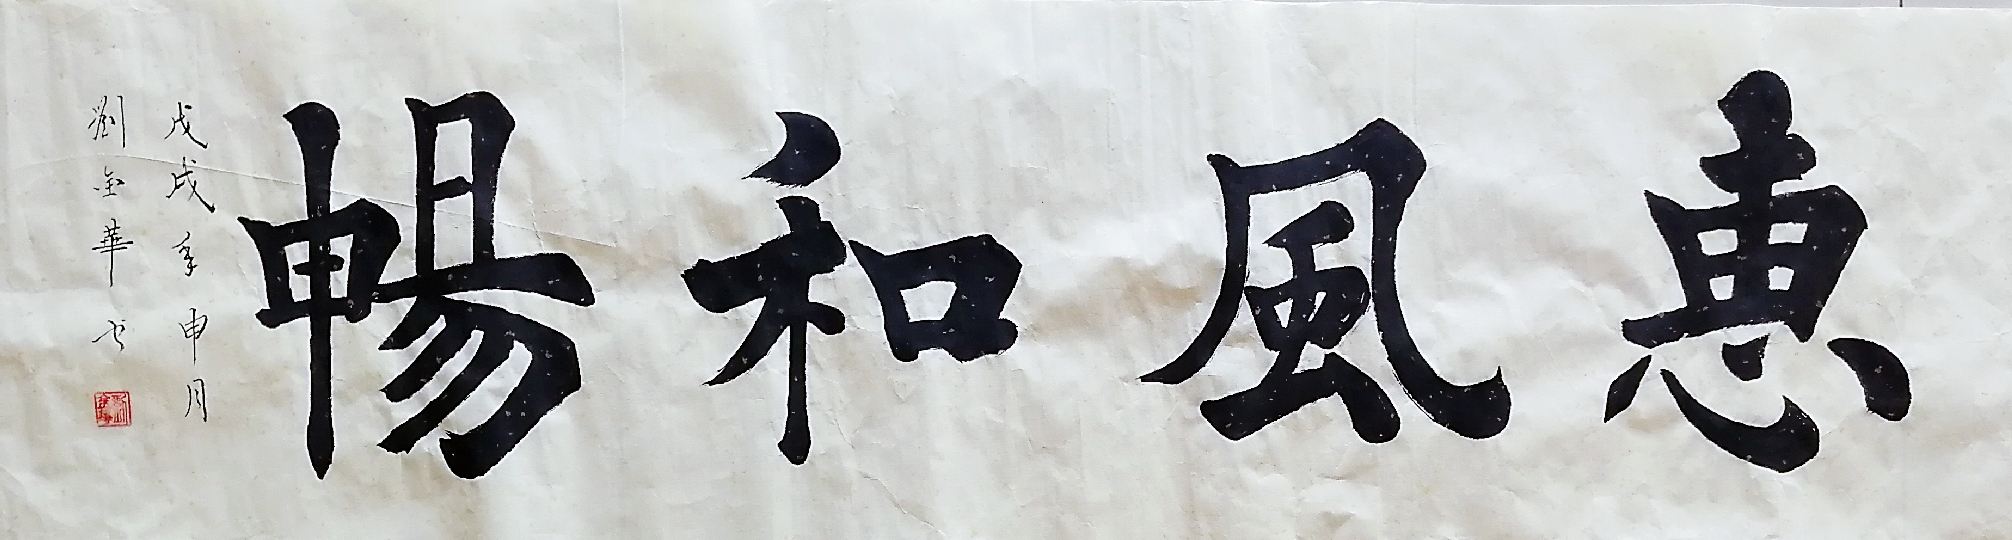 惠風和暢
戊戌年申月
劉金華书